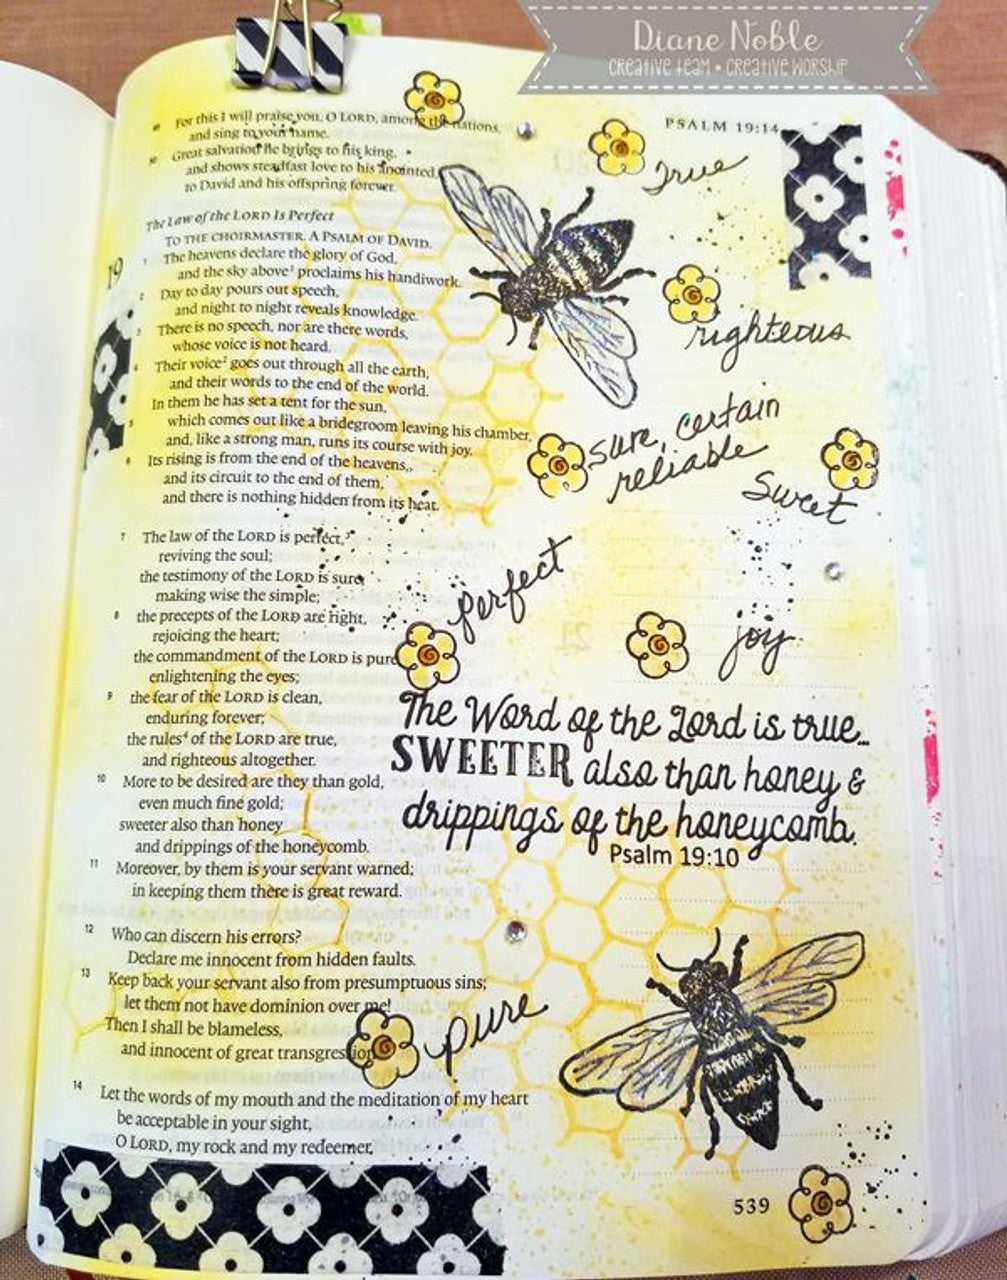 Diane Noble
CREATIVE TEAM • CREATIVE WORSHIP
PSALM 19:14
49 For this I will praise you, O LORD, among the nations,
and sing to your name.
50 Great salvation he brings to his king,
and shows steadfast love to his anointed,
to David and his offspring forever.
The Law of the LORD Is Perfect
TO THE CHOIRMASTER. A PSALM OF DAVID.
19
1 The heavens declare the glory of God,
and the sky above¹ proclaims his handiwork.
2 Day to day pours out speech,
and night to night reveals knowledge.
3 There is no speech, nor are there words,
whose voice is not heard.
4 Their voice² goes out through all the earth,
and their words to the end of the world.
In them he has set a tent for the sun,
5 which comes out like a bridegroom leaving his chamber,
and, like a strong man, runs its course with joy.
6 Its rising is from the end of the heavens,
and its circuit to the end of them,
and there is nothing hidden from its heat.
7 The law of the LORD is perfect,³
reviving the soul;
the testimony of the LORD is sure,
making wise the simple;
8 the precepts of the LORD are right,
rejoicing the heart;
the commandment of the LORD is pure
enlightening the eyes;
9 the fear of the LORD is clean,
enduring forever;
the rules⁴ of the LORD are true,
and righteous altogether.
10 More to be desired are they than gold,
even much fine gold;
sweeter also than honey
and drippings of the honeycomb.
11 Moreover, by them is your servant warned;
in keeping them there is great reward.
12 Who can discern his errors?
Declare me innocent from hidden faults.
13 Keep back your servant also from presumptuous sins;
let them not have dominion over me!
Then I shall be blameless,
and innocent of great transgression
14 Let the words of my mouth and the meditation of my heart
be acceptable in your sight,
O LORD, my rock and my redeemer.
True
righteous
sure, certain
reliable
Sweet
perfect
joy
The Word of the Lord is true...
SWEETER also than honey &
drippings of the honeycomb.
Psalm 19:10
pure
539